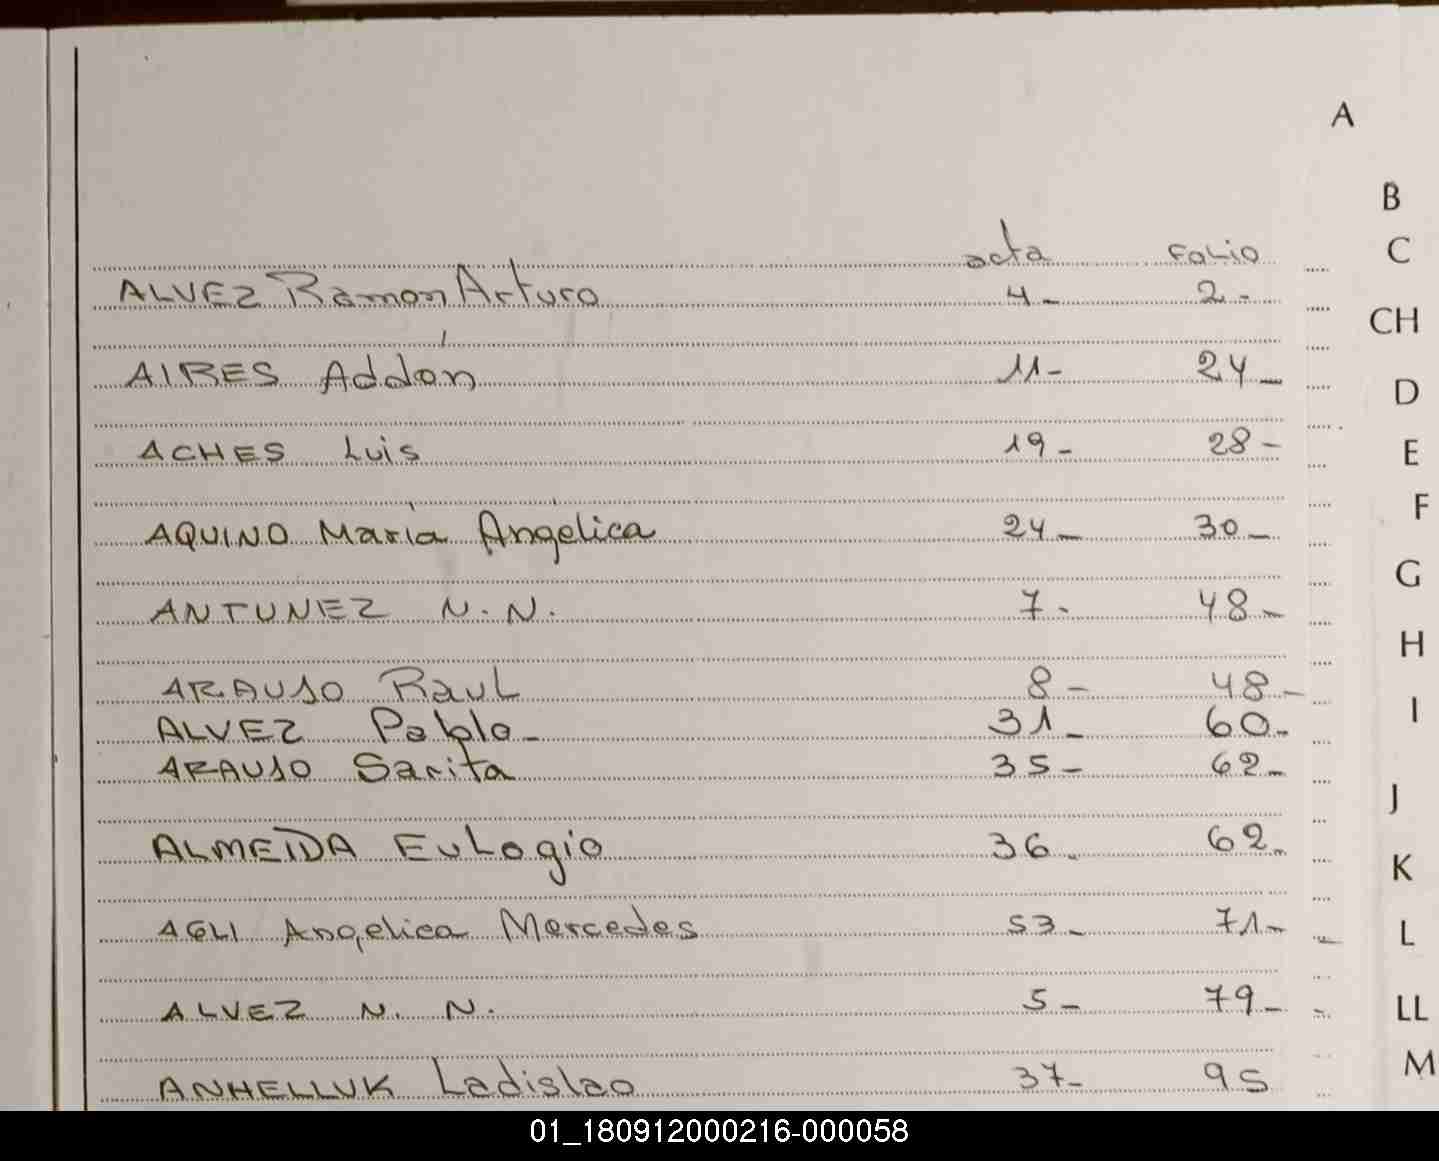 A
B
acta Folio
C
ALVEZ Ramon Arturo 4- 2-
CH
AIRES Addón 11- 24-
D
ACHES Luis 19- 28-
E
F
AQUINO María Angélica 24- 30-
G
ANTUNEZ N.N. 7- 48-
H
ARAUJO Raul 8- 48-
I
ALVEZ Pablo- 31- 60-
ARAUJO Sarita 35- 62-
J
ALMEIDA Eulogio 36- 62-
K
AGLI Angelica Mercedes 53- 71-
L
ALVEZ N. N. 5- 79-
LL
M
ANHELLUK Ladislao 37- 95
01_180912000216-000058